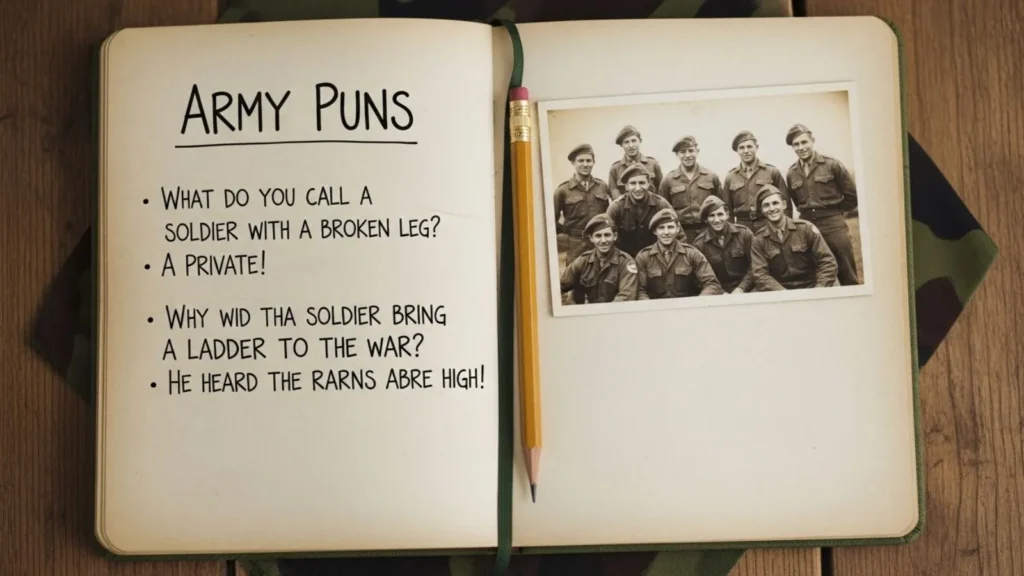 ARMY PUNS
• WHAT DO YOU CALL A
SOLDIER WITH A BROKEN LEG?
• A PRIVATE!
• WHY WID THA SOLDIER BRING
A LADDER TO THE WAR?
• HE HEARD THE RARNS ABRE HIGH!